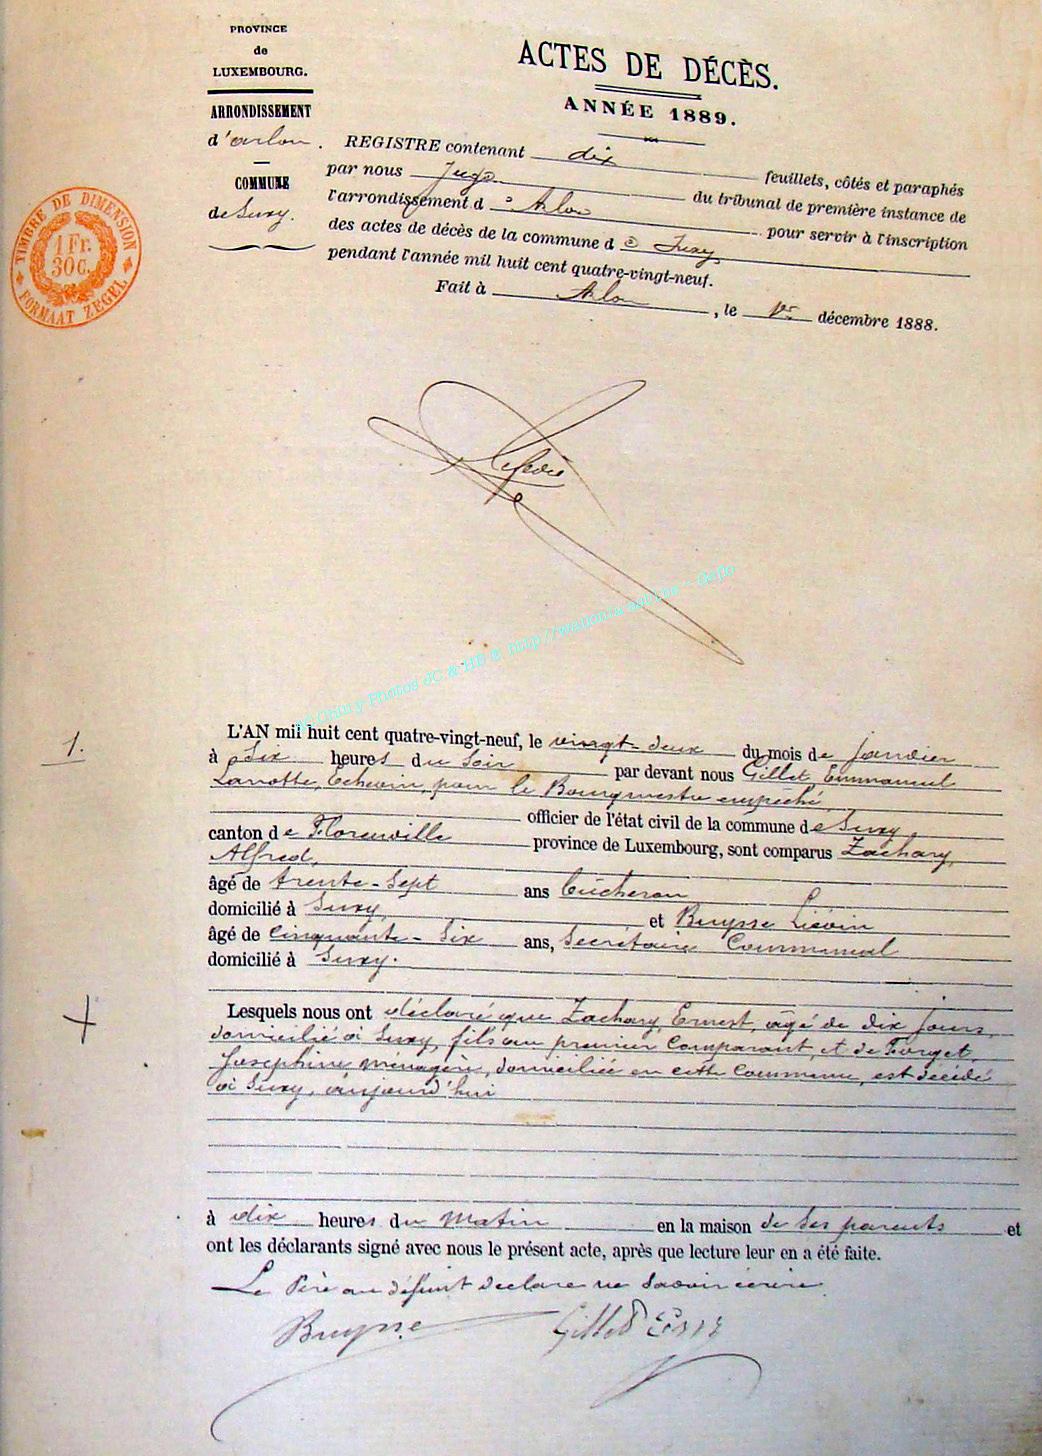 PROVINCE
de
LUXEMBOURG.
ARRONDISSEMENT
d'arlon.
COMMUNE
de Suxy.
TIMBRE DE DIMENSION
1 Fr.
30 C.
FORMAAT ZEGEL
ACTES DE DÉCÈS.
ANNÉE 1889.
REGISTRE contenant dix feuillets, côtés et paraphés
par nous Juge du tribunal de première instance de
l'arrondissement d'Arlon pour servir à l'inscription
des actes de décès de la commune de Suxy
pendant l'année mil huit cent quatre-vingt-neuf.
Fait à Arlon, le 1er décembre 1888.
JC & HB & http://wallonia.
1.
L'AN mil huit cent quatre-vingt-neuf, le vingt-deux du mois de Janvier
à Six heures du Soir par devant nous Gillet, Emmanuel
Lanotte, Echevin, pour le Bourgmestre empêché,
officier de l'état civil de la commune de Suxy,
canton de Florenville province de Luxembourg, sont comparus Zachary,
Alfred,
âgé de trente-Sept ans bûcheron
domicilié à Suxy, et Buysse Liévin
âgé de Cinquante-Six ans, Secrétaire Communal
domicilié à Suxy.
Lesquels nous ont déclaré que Zachary, Ernest, âgé de dix jours,
domicilié à Suxy, fils au premier Comparant, et de Forget,
Josephine ménagère, domiciliée en cette Commune, est décédé
à Suxy, aujourd'hui
à dix heures du Matin en la maison de ses parents et
ont les déclarants signé avec nous le présent acte, après que lecture leur en a été faite.
Le Père du défunt declare ne Savoir écrire
Buysse Gillet